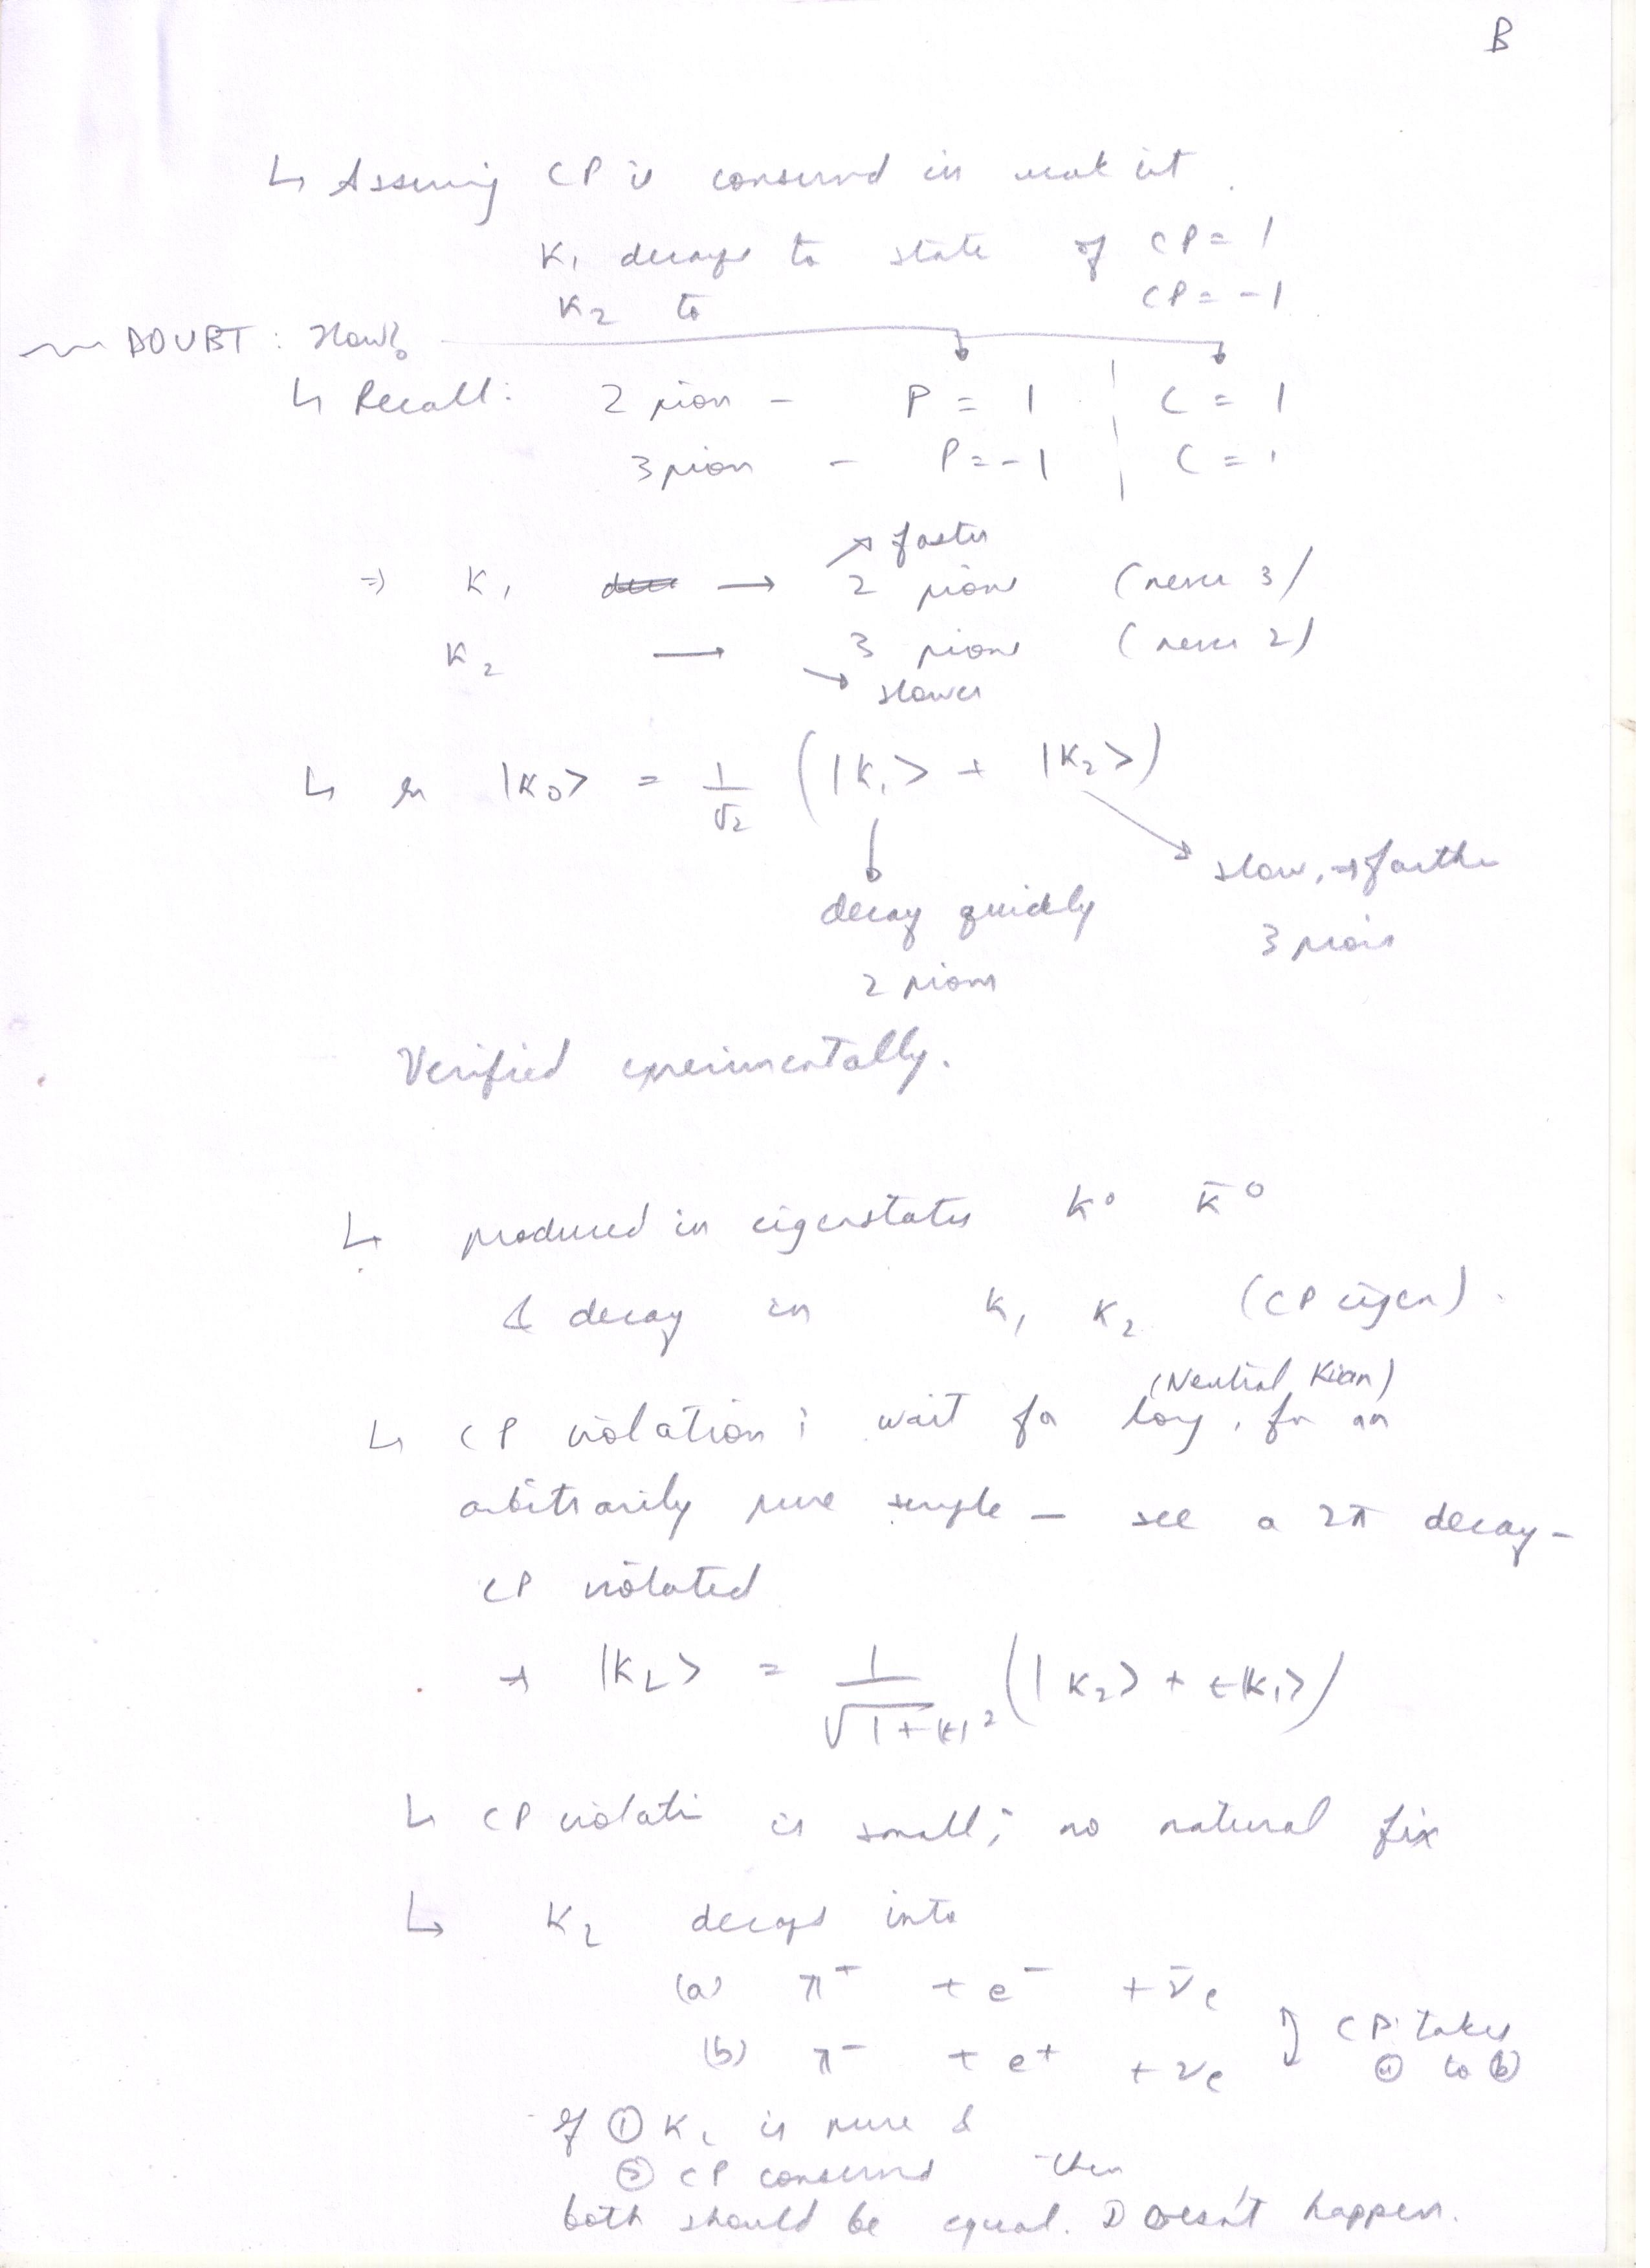 B
↳ Assuming CP is conserved in weak int.
K₁ decays to state of CP = 1
K₂ to CP = -1
DOUBT: How?
↳ Recall: 2 pion - P = 1 | C = 1
3 pion - P = -1 | C = 1
↗ faster
⇒ K₁ → 2 pions (never 3)
K₂ → 3 pions (never 2)
↘ slower
↳ |K₀> = 1/√2 (|K₁> + |K₂>)
slow, → farther
decay quickly
3 pions
2 pions
Verified experimentally.
↳ produced in eigenstates K⁰ K̄⁰
& decay in K₁ K₂ (CP eigen).
(Neutral Kion)
↳ CP violation: wait for long, for an
arbitrarily pure sample — see a 2π decay -
CP violated
→ |K_L> = 1/√(1+|ϵ|²) (|K₂> + ϵ|K₁>)
↳ CP violati is small; no natural fix
↳ K₂ decays into
(a) π⁺ + e⁻ + ν̄e
(b) π⁻ + e⁺ + νe
CP: takes
ⓐ to ⓑ
If ① K_L is pure &
② CP conserved then
both should be equal. Doesn't happen.